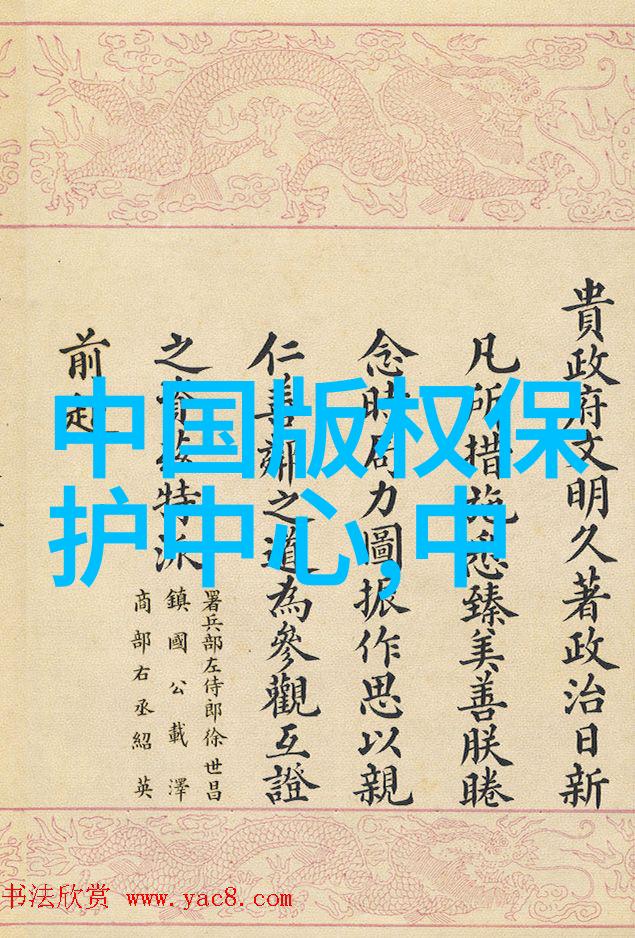 貴政府文明久著政治日新
凡所措施悉臻美善朕睠
念時局力圖振作思以親
仁善鄰之道為參觀互證
之資茲特派
署兵部左侍郎徐世昌
鎮國公載澤
商部右丞紹英
前赴
中国版权保
护中心,中
书法欣赏 www.yac8.com